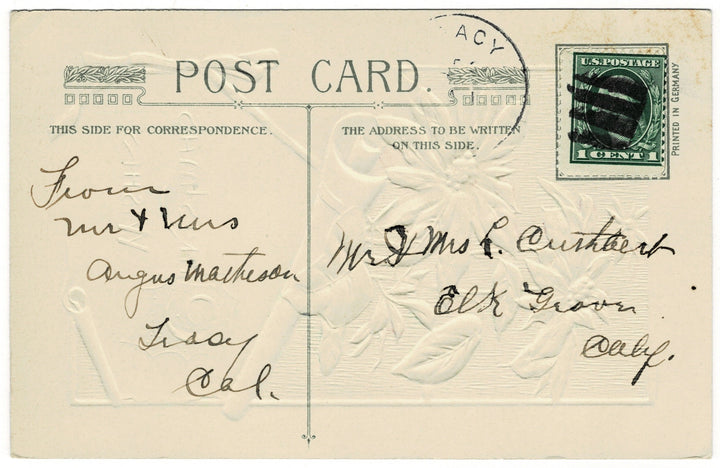 ACY
POST CARD.
U.S. POSTAGE
1 CENT 1
PRINTED IN GERMANY
THIS SIDE FOR CORRESPONDENCE.
THE ADDRESS TO BE WRITTEN
ON THIS SIDE.
From
Mr & Mrs
Angus Matheson
Tracy
Cal.
Mr & Mrs R. Cuthbert
Elk Grove
Calif.